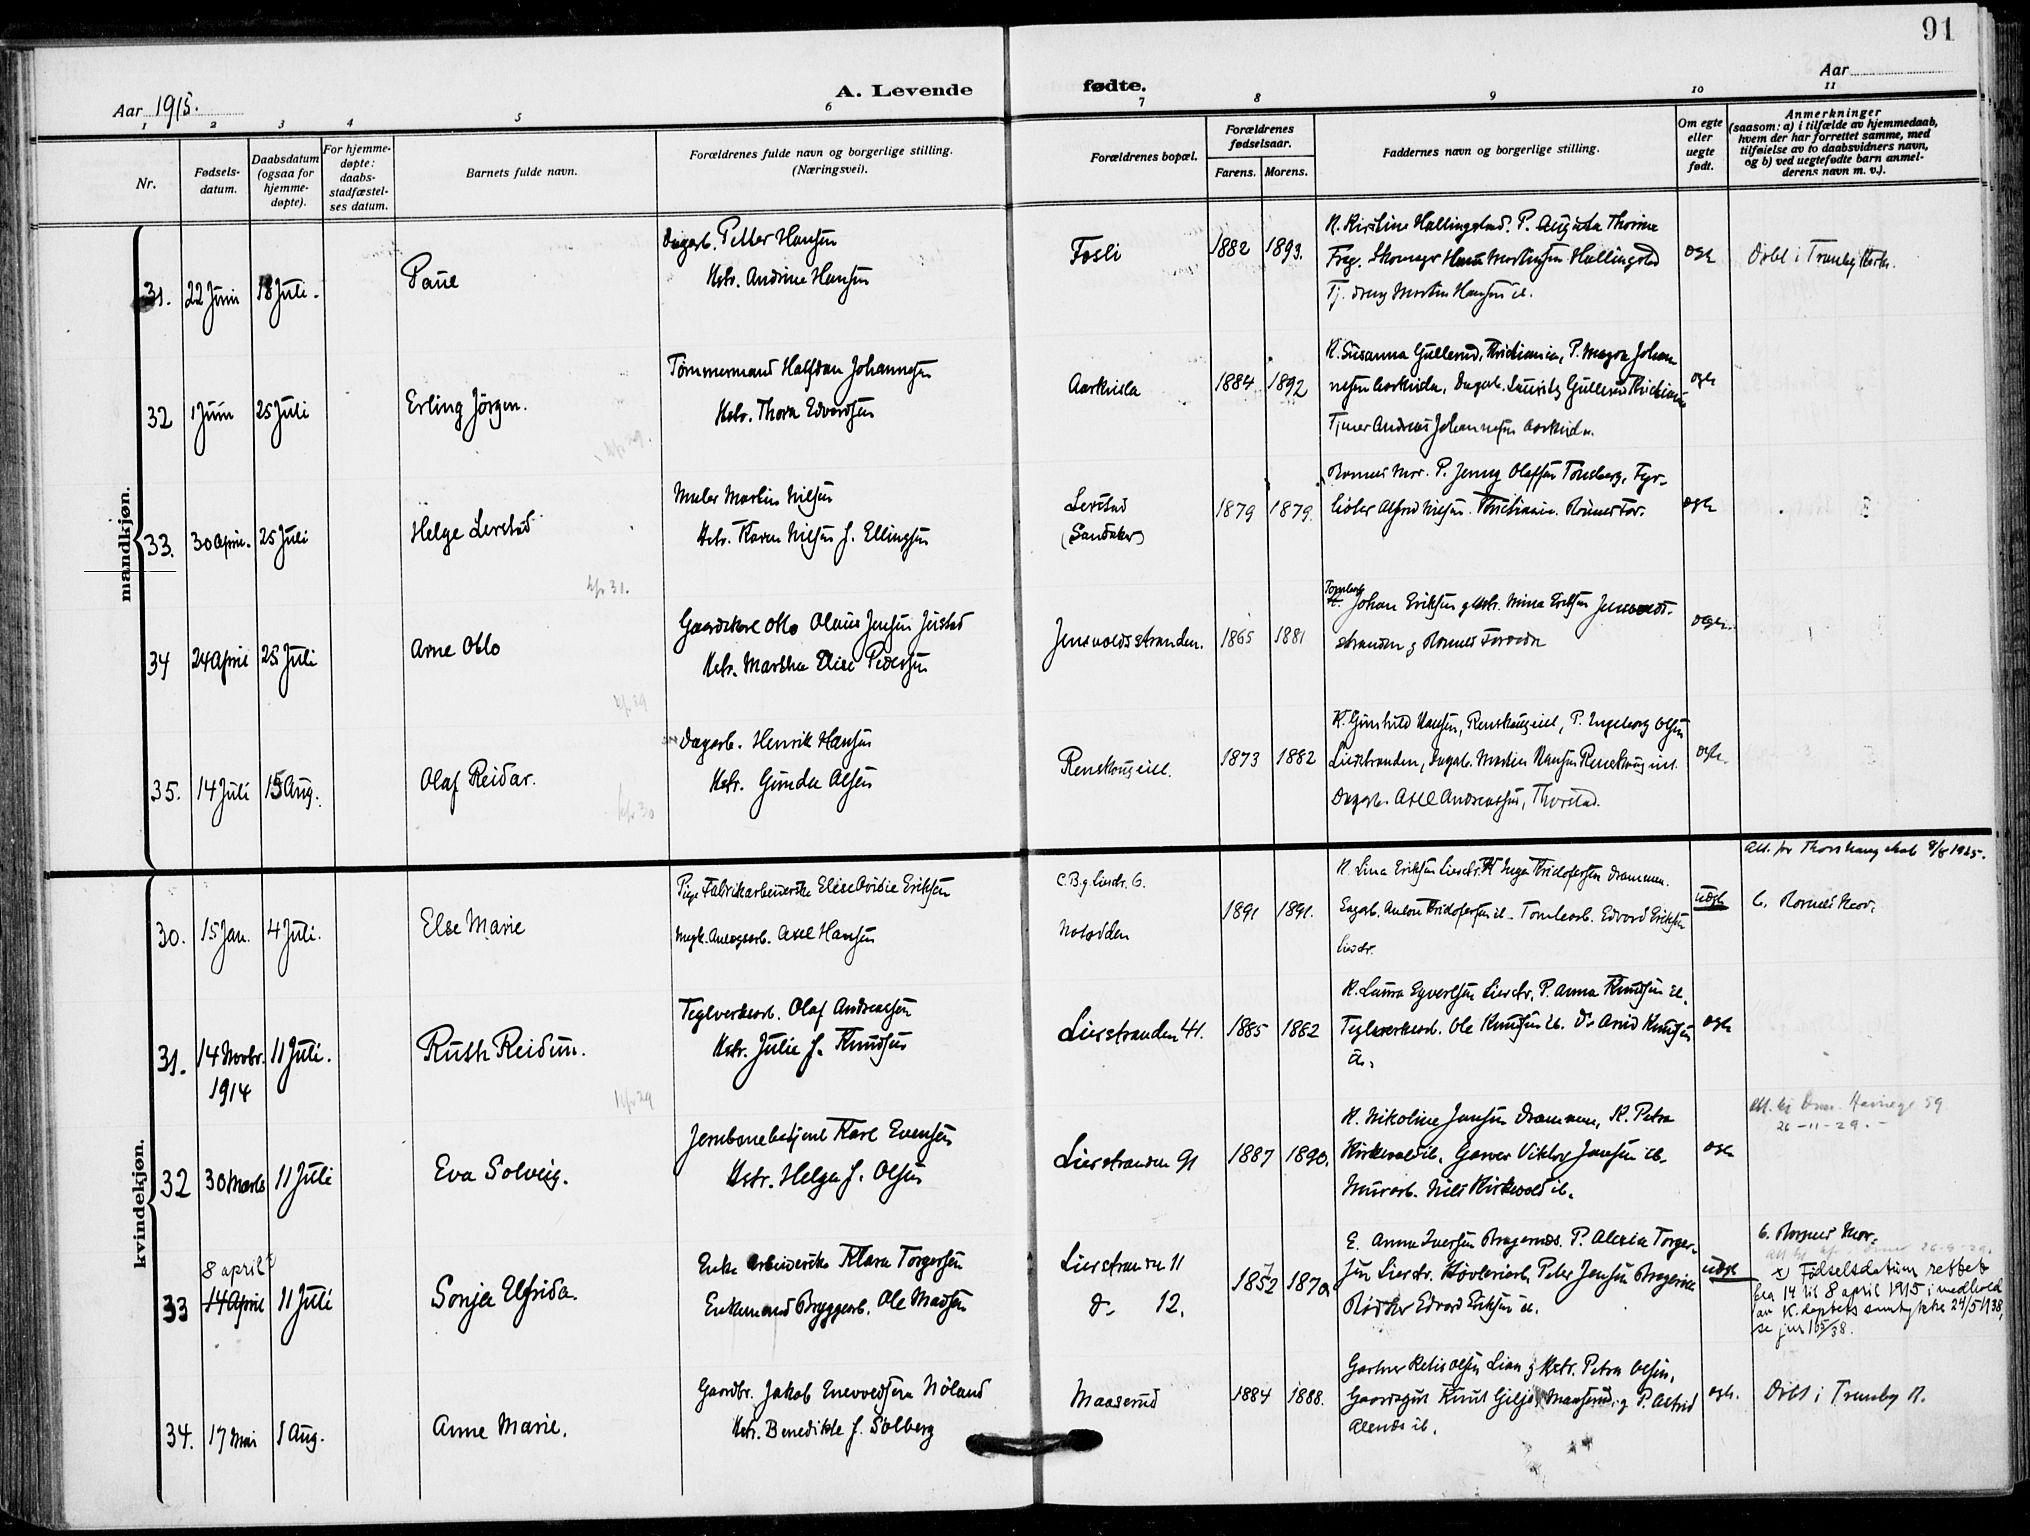 91
Aar 1915.
A. Levende fødte.
Aar
1 2 3 4 5 6 7 8 9 10 11
Nr.
Fødsels-
datum.
Daabsdatum
(ogsaa for
hjemme-
døpte).
For hjemme-
døpte:
daabs-
stadfæstel-
ses datum.
Barnets fulde navn.
Forældrenes fulde navn og borgerlige stilling.
(Næringsvei).
Forældrenes bopæl.
Forældrenes
fødselsaar.
Farens. Morens.
Faddernes navn og borgerlige stilling.
Om egte
eller
uegte
født.
Anmerkninger
(saasom: a) i tilfælde av hjemmedaab,
hvem der har forrettet samme, med
tilføielse av to daabsvidners navn,
og b) ved uegtefødte barn anmel-
derens navn m. v.).
mandkjøn.
31. 22 Juni 18 Juli. Paul
Dagarb. Petter Hansen
Hstr. Andrine Hansen
Fosli 1882 1893.
K. Kirstine Hallingstad. P. Augusta Thorine
Frøg. Skomager Hans Mortinsen Hallingstad
Tj. dreng Morten Hansen ib.
egte
Døbt i Tranby Kirke.
32 1 Juni 25 Juli Erling Jörgen.
Tømmermand Halfdan Johannesen
Hstr. Thora Edvardsen
Aarkvisla 1884 1892
K. Susanna Gullerud, Kristiania, P. Magda Johan
nesen Aarkvisla, Dagarb. Lauritz Gullerud Kristiania
Tjener Andreas Johannesen Aarkvisla.
egte
33. 30 April. 25 Juli Helge Lerstad
Maler Martin Nilsen
Hstr. Karen Nilsen f. Ellingsen
Lerstad
(Sandaker)
1879 1879.
Barnets Mor. P. Jenny Olafsen Tønsberg, Fyr-
bøter Alfred Nilsen. Kristiania. Barnets Far.
egte
kfr 31.
34 24 April 25 Juli Arne Otto
Gaardskarl Otto Olaus Jensen Justad
Hstr. Martha Elise Pedersen
Jensvoldsstranden. 1865 1881
Tømberb.
Johan Eriksen g Hstr. Mina Eriksen Jensvolds-
stranden g Barnets Forældre
egte.
35. 14 Juli 15 Aug. Olaf Reidar.
Dagarb. Henrik Hansen
Hstr. Gunda Olsen
Renskougeiet. 1873 1882
K. Gunhild Hansen, Renskougeiet, P. Ingeborg Olsen
Lierstranden, Dagarb. Martin Hansen Renskougeiet.
Dagarb. Axel Andreassen, Thorstad.
egte.
kfr 30
kvindekjøn.
30. 15 Jan. 4 Juli. Else Marie
Pige Fabrikarbeiderske Elise Ovidie Eriksen
Ungk. Anlægsarb. Axel Hansen
C.B.g. Lierstr. 6.
Notodden
1891 1891.
K. Lina Eriksen Lierstr. Inga Kristofersen Drammen.
Dagarb. Anton Kristofersen ib - Tomtearb. Edvard Eriksen
Lierstr.
uegte
Att. for Thorshaug skole 9/8 1925.
b. Barnets Mor.
31. 14 Novbr. 11 Juli. Ruth Reidun.
1914
Teglverksarb. Olaf Andreassen
Hstr. Julie f. Knudsen
Lierstranden 41. 1885 1882
K. Laura Eyvertsen Lierstr. P. Anna Knudsen ib.
Teglverksarb. Ole Knudsen ib. Do Arvid Knudsen
ib.
egte
kfr 29
32 30 Marts 11 Juli Eva Solveig.
Jernbanebetjent Karl Evensen
Hstr. Helga f. Olsen
Lierstranden 91 1887 1890.
K. Nikoline Jansen Drammen, K. Petra
Kirkevold ib. Garver Viktor Jansen ib.
Murarb. Nils Kirkevold ib.
egte
26-11-29.
33 8 april x) 11 Juli Sonja Elfrida.
14 April
Enke Arbeiderske Klara Torgersen
Enkemand Bryggearb. Ole Madsen
Lierstranden 11
do 12.
1852 1870
E. Anna Iversen Bragernes. P. Alexia Torger-
sen Lierstr. Høvleriarb. Peter Jensen Bragernes
Bødker Edvard Eriksen ib.
uegte
b. Barnets Mor.
x) Fødselsdatum rettet
fra 14 til 8 april 1915 i medhold
av K. deptets samtykke 24/5 1938,
se jur 165/38.
34. 17 Mai 1 Aug. Anne Marie.
Gaardbr. Jakob Enevoldsen Nøland
Hstr. Benedikte f. Solberg
Maaserud 1884 1888.
Gartner Relis Olsen Lian g Hstr. Petra Olsen.
Gaardsgut Knut Giljo, Maaserud, g P. Astrid
ib.
egte.
Døbt i Tranby K.